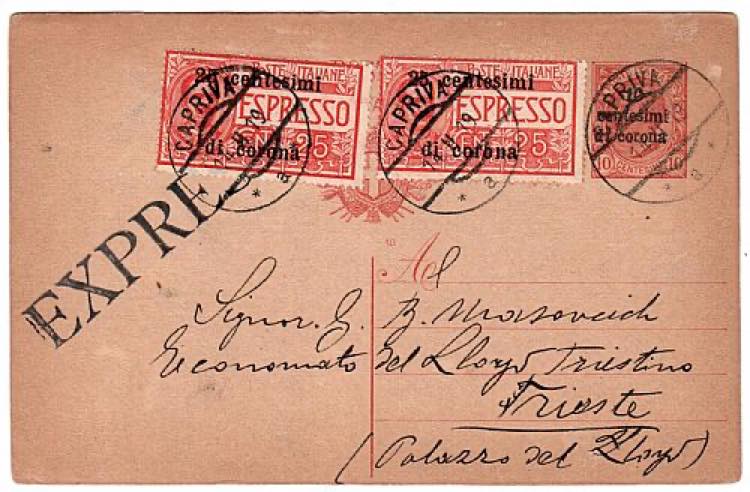 POSTE ITALIANE
25 centesimi
ESPRESSO
di corona
25
CAPRIVA
a
POSTE ITALIANE
25 centesimi
ESPRESSO
di corona
25
CAPRIVA
a
CAPRIVA
10
centesimi
di corona
10 CENTESIMI 10
a
EXPRE
A
Signor. E. B. Masovcich
Economato del Lloyd Triestino
Trieste
(Palazzo del Lloyd)